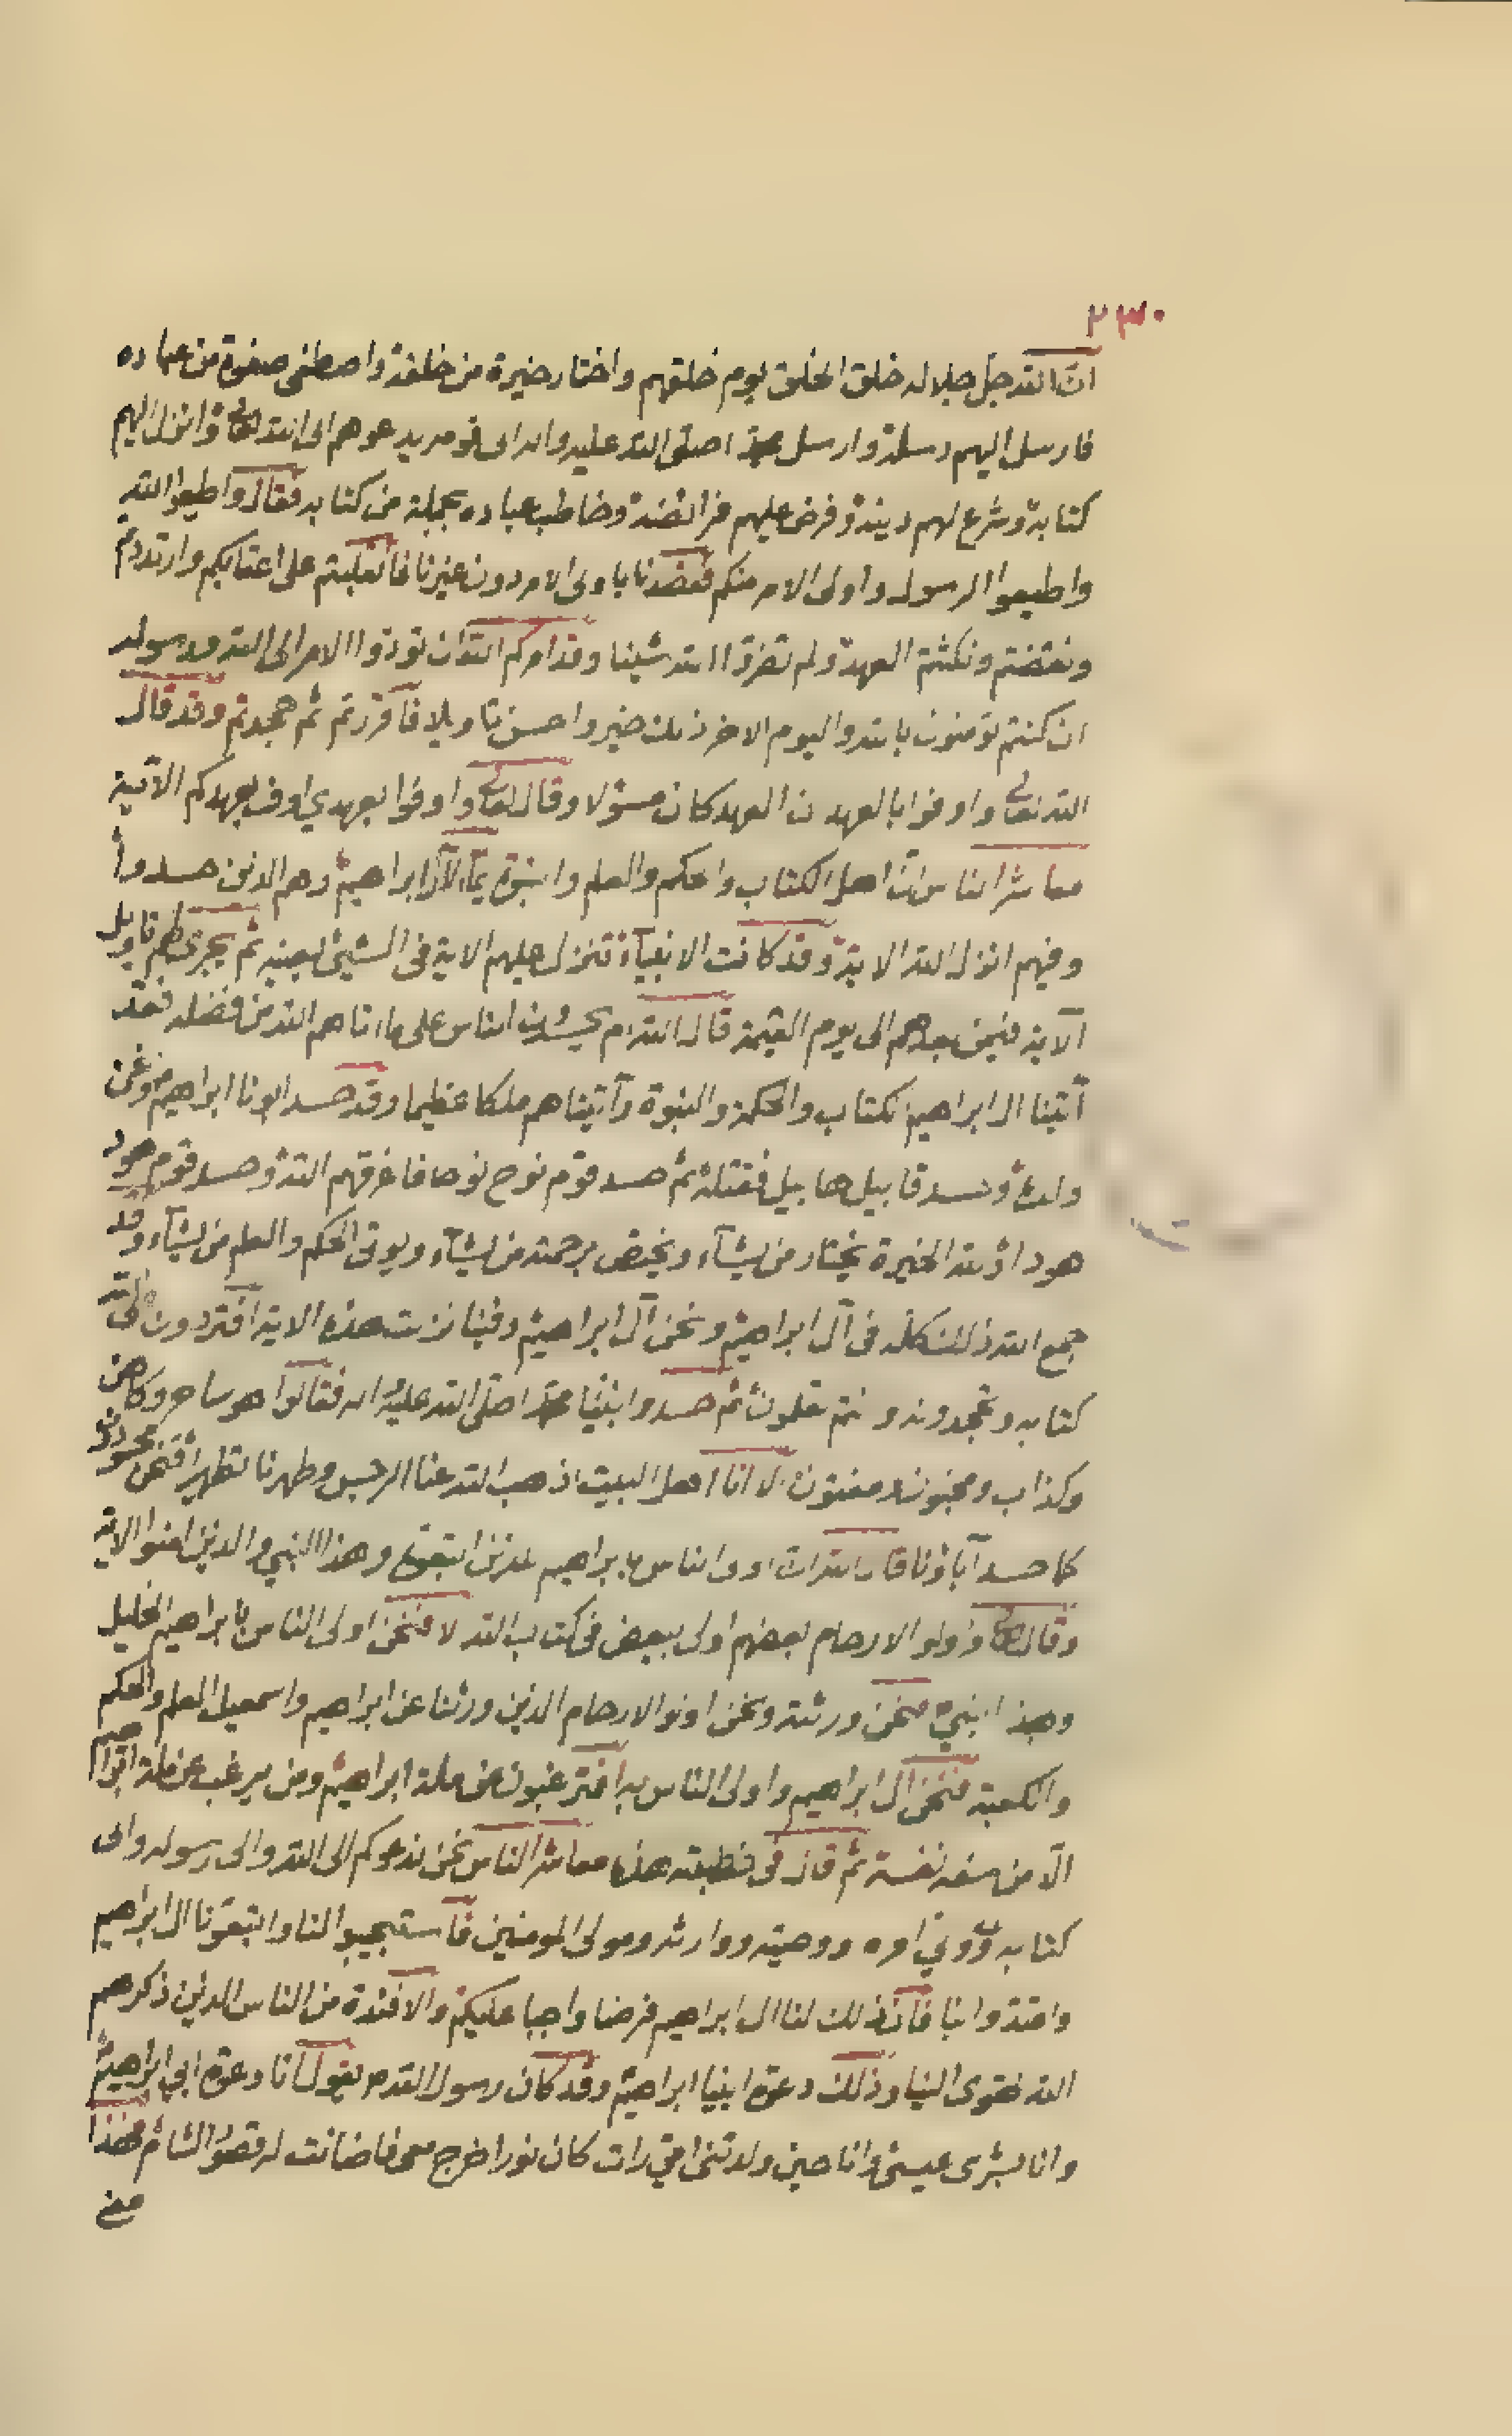 ٢٣٠
ان الله جل جلاله خلق الخلق يوم خلقهم واختار خيرة من خلقه واصطفى صفوة من عباده
فارسل اليهم رسله وارسل محمدا صلى الله عليه واله الى قومه يدعوهم الى الله تعالى وانزل اليهم
كتابه وشرع لهم دينه وفرض عليهم فرائضه وخاطب عباده بجملة من كتابه فقال واطيعوا الله
واطيعوا الرسول واولى الامر منكم فقصدنا باولى الامر دون غيرنا فانقلبتم على اعقابكم وارتددتم
ونقضتم ونكثتم العهد ولم تضروا الله شيئا وقد امركم الله ان تودوا الامر الى الله ورسوله
ان كنتم تومنون بالله واليوم الاخر ذلك خير واحسن تاويلا فاقررتم ثم جحدتم وقد قال
الله تعالى واوفوا بالعهد ان العهد كان مسؤلا وقال تعالى واوفوا بعهدي اوف بعهدكم الآتية
معاشر الناس ان اهل الكتاب والحكم والعلم والنبوة آل ابراهيم وهم الذين حسدوا
وفيهم انزل الله الاية وقد كانت الانبياء تنزل عليهم الاية فى الشيئ بعينه ثم يجرى تاويل
الآية فيمن بعدهم الى يوم القيمة قال الله ام يحسدون الناس على ما اتاهم الله من فضله فقد
آتينا ال ابراهيم الكتاب والحكمة والنبوة وآتيناهم ملكا عظيما وقد حسد ابونا ابراهيم ونحن
ولده وحسد قابيل هابيل فقتله ثم حسد قوم نوح نوحا فاغرقهم الله وحسد قوم هود
هودا ولله الخيرة يختار من يشآء ويختص برحمته من يشآء ويوتى الحكم والعلم من يشآء وقد
جمع الله ذلك كله فى آل ابراهيم ونحن آل ابراهيم وفينا نزلت هذه الاية افتردون على الله
كتابه وتجحدونه وانتم تعلمون ثم حسدوا نبينا محمدا صلى الله عليه واله فقالوا هو ساحر وكاهن
وكذاب ومجنون مفتون الا انا اهل البيت اذهب الله عنا الرجس وطهرنا تطهيرا فنحن محسودون
كما حسد آباؤنا قال الله ان اولى الناس بابراهيم للذين اتبعوه وهذا النبي والذين امنوا الاية
وقال تعالى واولو الارحام بعضهم اولى ببعض فى كتاب الله لا فنحن اولى الناس بابراهيم الخليل
وبهذا النبي ونحن ورثته ونحن اولو الارحام الذين ورثنا عن ابراهيم واسمعيل العلم والحكم
والكعبة فنحن آل ابراهيم واولى الناس به افترغبون عن ملة ابراهيم ومن يرغب عن ملة ابراهيم
الا من سفه نفسه ثم قال فى خطبته هذه معاشر الناس نحن ندعوكم الى الله والى رسوله والى
كتابه وولي امره ووصيته ووارثه ومولى المومنين فاستجيبوا لنا واتبعونا ال ابراهيم
واقتدوا بنا فان ذلك لنا ال ابراهيم فرضا واجبا عليكم والافئدة من الناس الذين ذكرهم
الله تهوى الينا وذلك دعوة ابينا ابراهيم وقد كان رسول الله يقول انا دعوة ابي ابراهيم
وانا بشرى عيسى وانا حين ولدتنى امي رات كان نورا خرج معى فاضائت له قصور الشام فهذا
منى